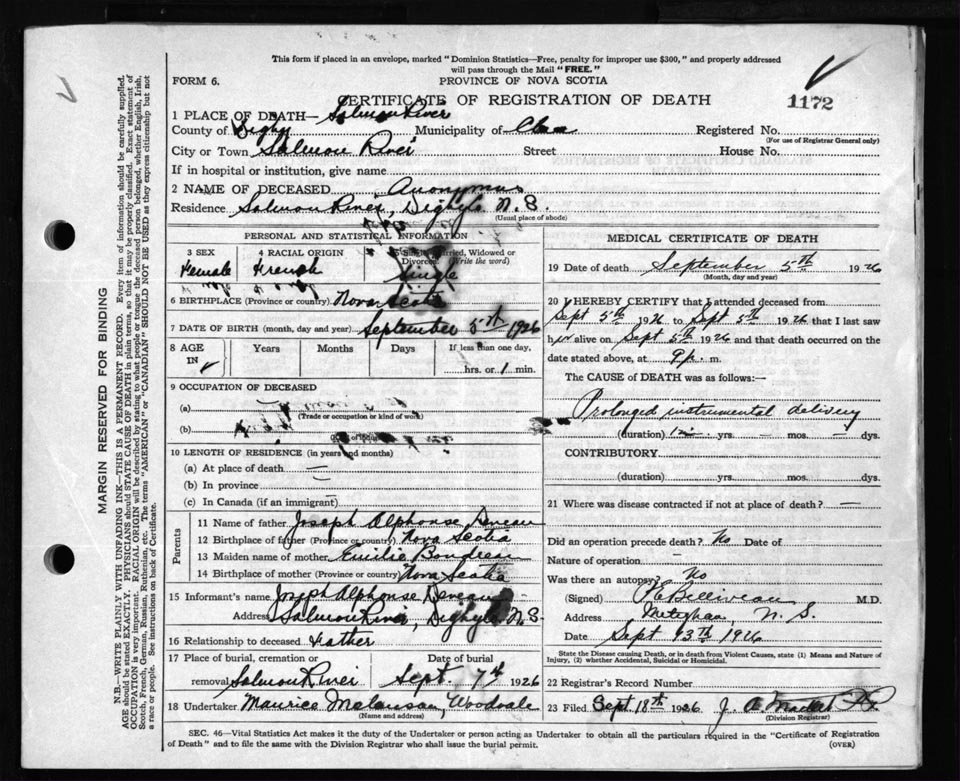 This form if placed in an envelope, marked "Dominion Statistics—Free, penalty for improper use $300," and properly addressed
will pass through the Mail "FREE."
FORM 6.
PROVINCE OF NOVA SCOTIA
CERTIFICATE OF REGISTRATION OF DEATH
1172
1 PLACE OF DEATH— Salmon River
County of Digby Municipality of Clare Registered No.
(For use of Registrar General only)
City or Town Salmon River Street House No.
If in hospital or institution, give name
2 NAME OF DECEASED Anonymous
Residence Salmon River, Digby Co. N. S.
(Usual place of abode)
PERSONAL AND STATISTICAL INFORMATION
3 SEX
Female
4 RACIAL ORIGIN
French
5 Single, Married, Widowed or
Divorced (Write the word)
Single
6 BIRTHPLACE (Province or country) Nova Scotia
7 DATE OF BIRTH (month, day and year) September 5th 1926
8 AGE IN
Years Months Days
If less than one day,
hrs. or 1 min.
9 OCCUPATION OF DECEASED
(a)
(Trade or occupation or kind of work)
(b)
10 LENGTH OF RESIDENCE (in years and months)
(a) At place of death —
(b) In province —
(c) In Canada (if an immigrant) —
Parents
11 Name of father Joseph Alphonse Deveau
12 Birthplace of father (Province or country) Nova Scotia
13 Maiden name of mother Emilie Boudreau
14 Birthplace of mother (Province or country) Nova Scotia
15 Informant's name Joseph Alphonse Deveau
Address Salmon River, Digby Co. N. S.
16 Relationship to deceased Father
17 Place of burial, cremation or
removal Salmon River
Date of burial
Sept. 7th 1926
18 Undertaker Maurice Melanson, Woodvale
(Name and address)
MEDICAL CERTIFICATE OF DEATH
19 Date of death September 5th 1926
(Month, day and year)
20 I HEREBY CERTIFY that I attended deceased from
Sept 5th 1926 to Sept 5th 1926 that I last saw
her alive on Sept 5th 1926 and that death occurred on the
date stated above, at 9 p. m.
The CAUSE OF DEATH was as follows:—
Prolonged instrumental delivery
(duration) yrs. — mos. — dys.
CONTRIBUTORY
(duration) yrs. mos. dys.
21 Where was disease contracted if not at place of death? —
Did an operation precede death? No Date of
Nature of operation —
Was there an autopsy? No
(Signed) Belliveau M.D.
Address Meteghan, N. S.
Date Sept 13th 1926
State the Disease causing Death, or in death from Violent Causes, state (1) Means and Nature of
Injury, (2) whether Accidental, Suicidal or Homicidal.
22 Registrar's Record Number
23 Filed Sept 18th 1926 J. A.
(Division Registrar)
SEC. 46—Vital Statistics Act makes it the duty of the Undertaker or person acting as Undertaker to obtain all the particulars required in the "Certificate of Registration
of Death" and to file the same with the Division Registrar who shall issue the burial permit.
(OVER)
MARGIN RESERVED FOR BINDING
N.B.—WRITE PLAINLY WITH UNFADING INK—THIS IS A PERMANENT RECORD. Every item of information should be carefully supplied.
AGE should be stated EXACTLY. PHYSICIANS should STATE CAUSE OF DEATH in plain terms, so that it may be properly classified. Exact statement of
OCCUPATION is very important. RACIAL ORIGIN will be described by stating to what people or tongue the deceased person belonged, whether English, Irish,
Scotch, French, German, Russian, Ruthenian, etc. The terms "AMERICAN" or "CANADIAN" SHOULD NOT BE USED as they express citizenship but not
a race or people. See instructions on back of Certificate.